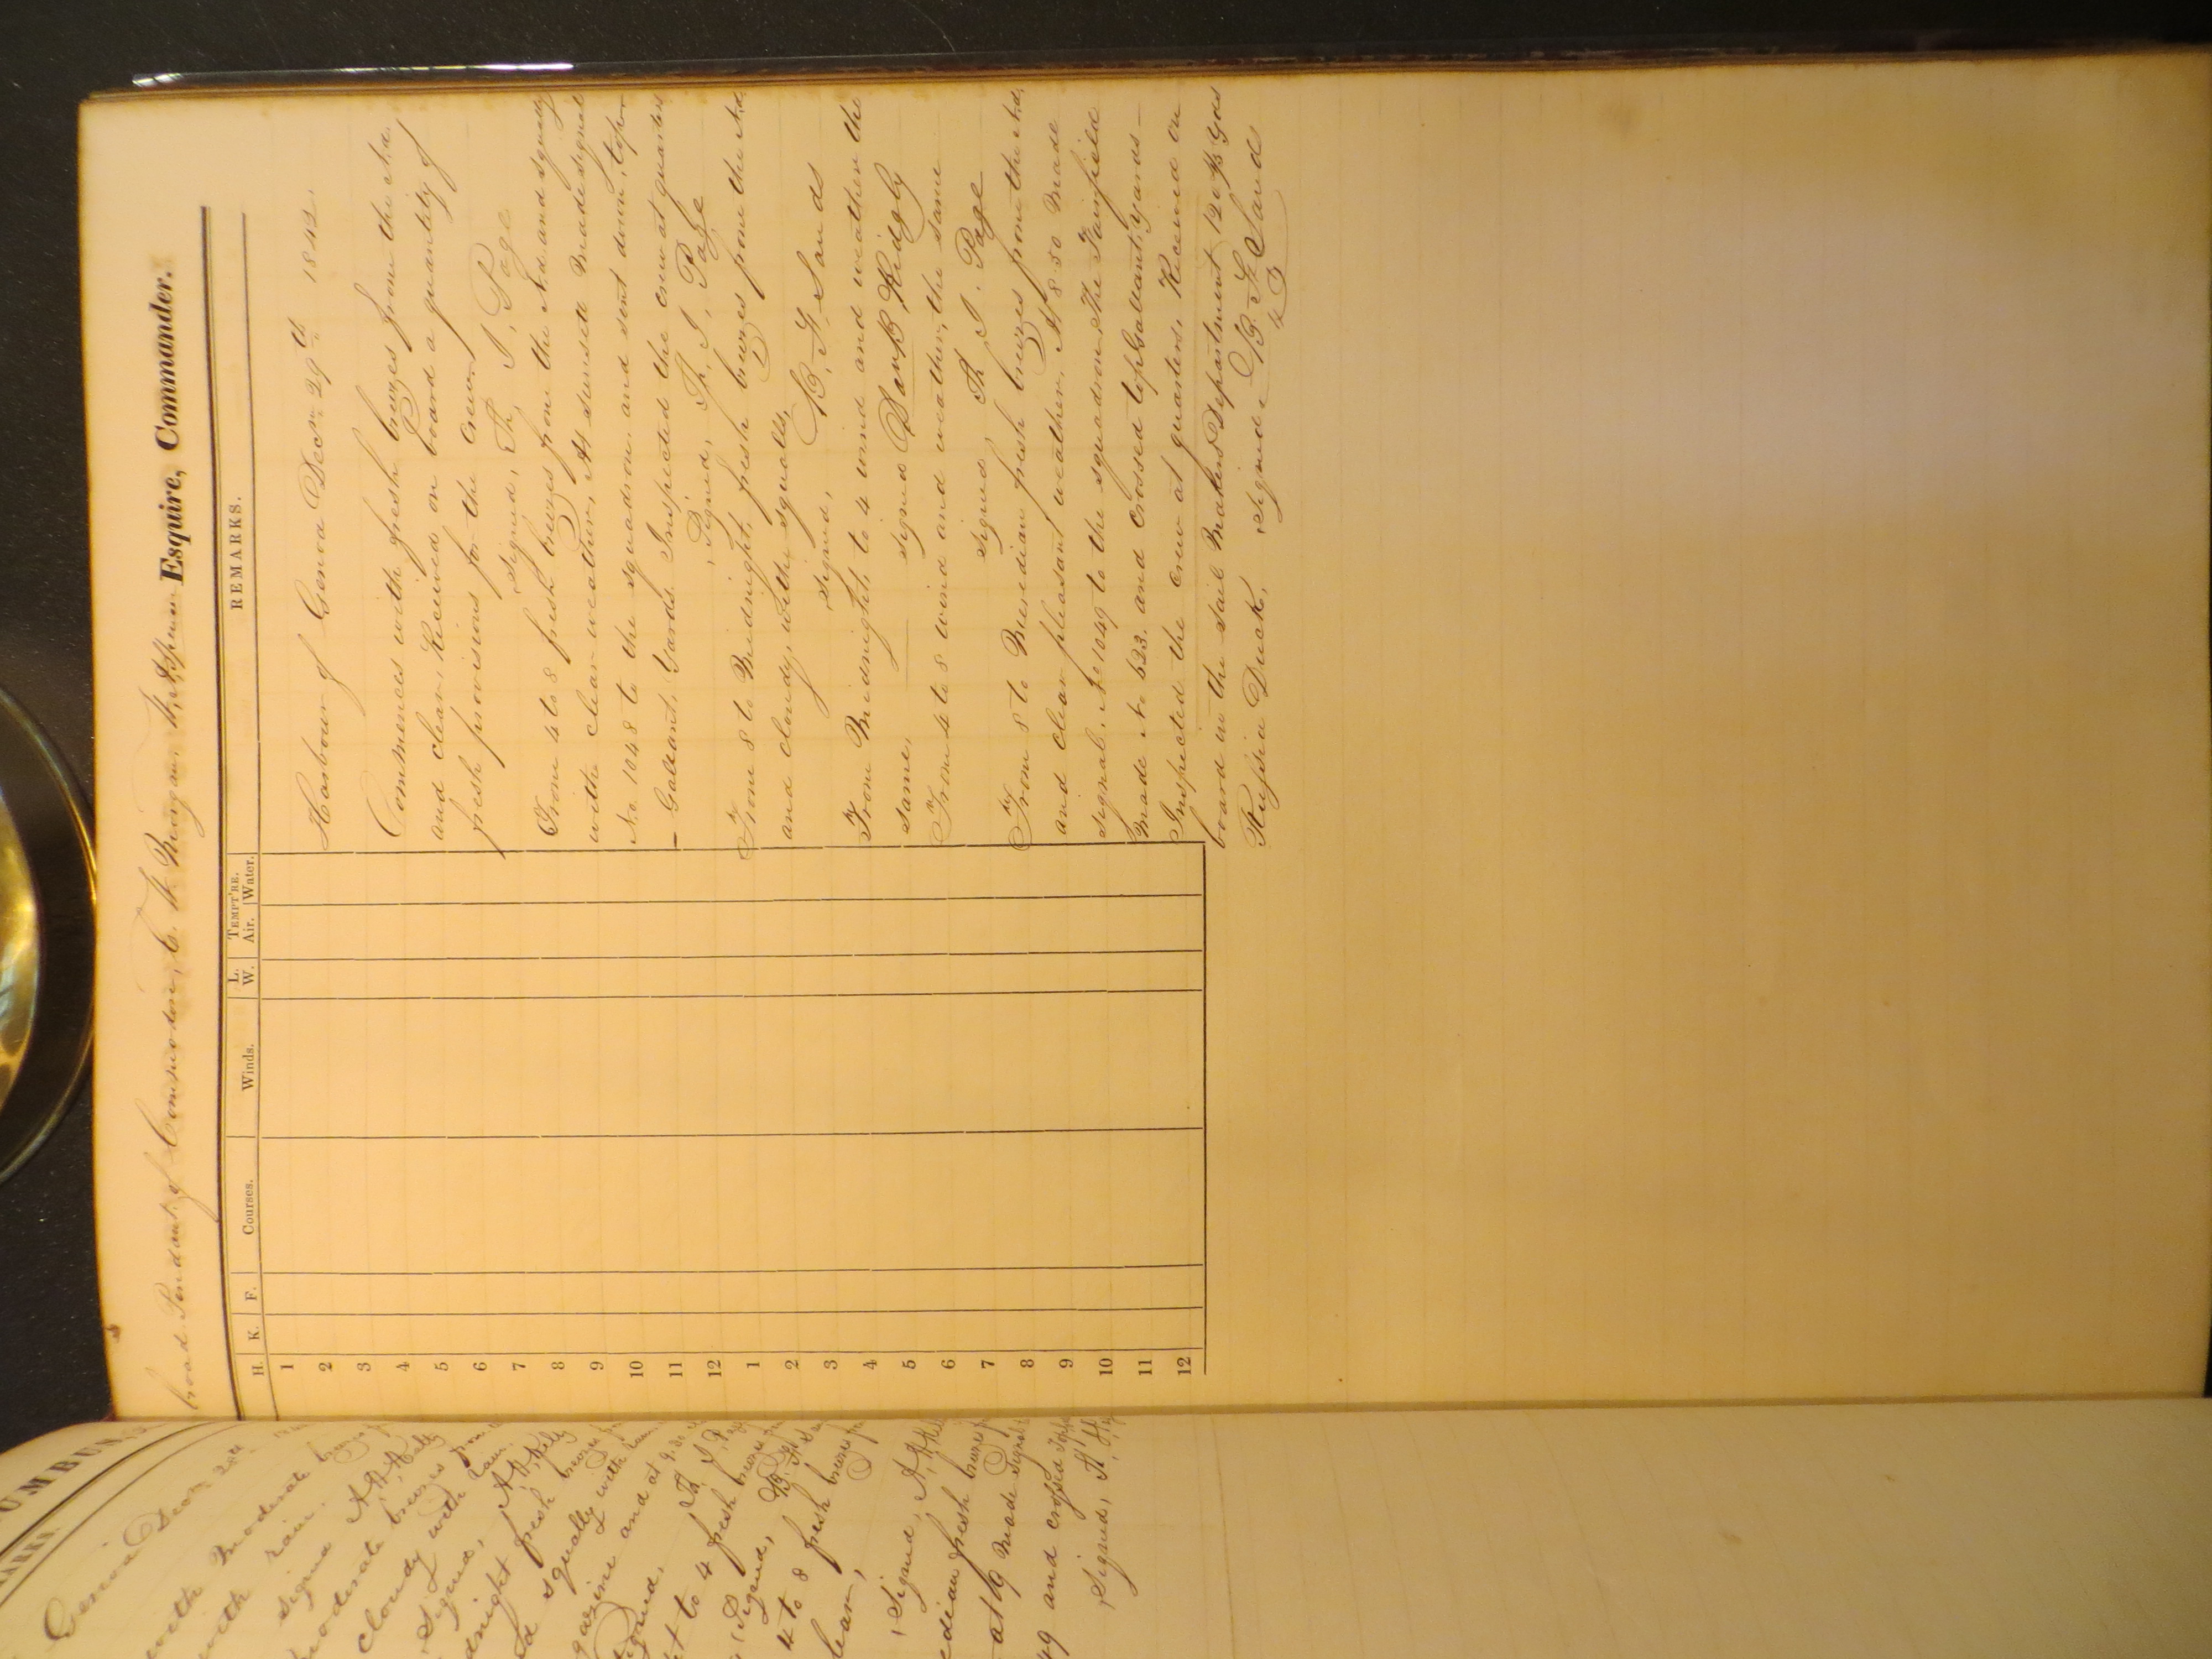 UMBUS,
ARKS.
Genoa Decr 28th
with Moderate
with rain.
Signed
Moderate breezes from
cloudy with rain.
Signed,
dnight fresh breezes
d squally with
gazine and at 9.30
Signed, Th. J. Page
ht to 4 fresh breezes
Signed, B. F. Sands
4 to 8 fresh breezes
lear,
Signed,
edian fresh breezes
at 9 Made Signal
49 and crossed
Signed,
broad Pendant of Commodore, C. W. Morgan. Esquire, Commander.
H. K. F. Courses. Winds. L. W. TEMPT'RE. Air. Water. REMARKS.
1
2
3
4
5
6
7
8
9
10
11
12
1
2
3
4
5
6
7
8
9
10
11
12
Harbour of Genoa Decr 29th 1842.
Commences with fresh breezes from the Nd.
and clear, Received on board a quantity of
fresh provisions for the crew,
Signed, Th. J. Page
From 4 to 8 fresh breezes from the Nd and squally
with clear weather, At sunset Made signal
No. 1048 to the squadron, and sent down, top
- Gallant, Yards. Inspected the crew at quarters
Signed, Th. J. Page
From 8 to Midnight, fresh breezes from the Nd.
and cloudy, with squalls,
Signed, B. F. Sands
From Midnight, to 4 wind and weather the
same, signed Danl B. Ridgly
From 4 to 8 wind and weather, the same
Signed Th J. Page
From 8 to Meridian fresh breezes from the Nd.
and clear pleasant weather, At 8.30 Made
signal, No 1049 to the squadron, The Fairfield
Made No 623. and crossed topGallant, Yards -
Inspected the crew at quarters, Received on
board in the Sail Makers Department 120 Yds
Russia Duck, Signed - B. F. Sands